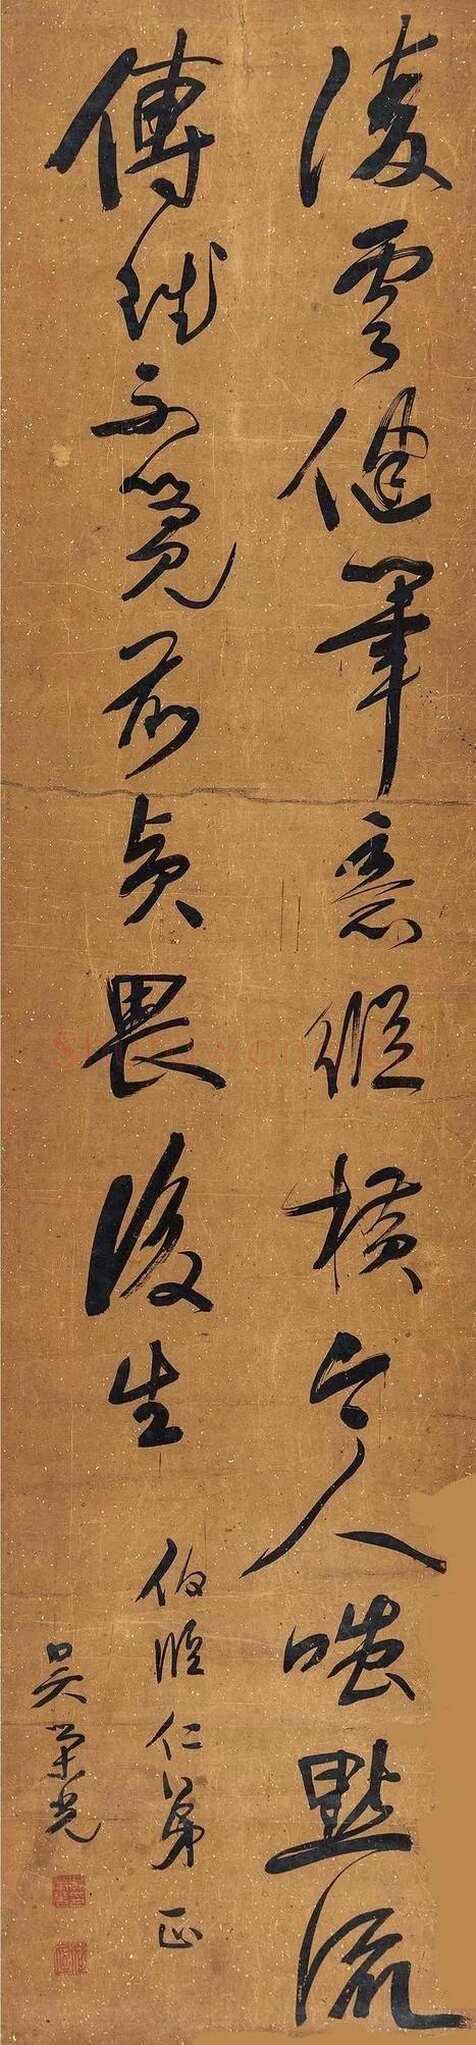 凌雲健筆意縱橫今人嗤點流
傳賦不覺前賢畏後生
伯臨仁弟正
吳榮光